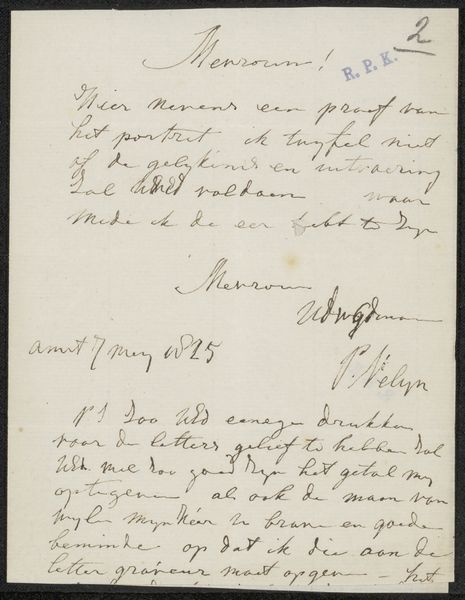 2
R. P. K.
Mevrouw!
Hier nevens een proef van
het portret ik twyfel niet
of de gelykenis en uitvoering
Zal UEd voldoen waar
mede ik de eer hebt te Zyn
Mevrouw
UEdwgd
amst 7 mey 1825
P. Velyn
PS Zoo UEd eenege drukken
voor de letters gelieft te hebben Zal
UEd wel Zoo goed Zyn het getal my
optegeven als ook de naam van
wylen mynhéer U brave en goede
beminde op dat ik die aan de
letter graveur moet opgeven